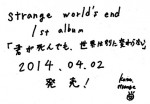 strange world's end
1st album
「君が死んでも、世界は別に変わらない」
2014.04.02
発売!